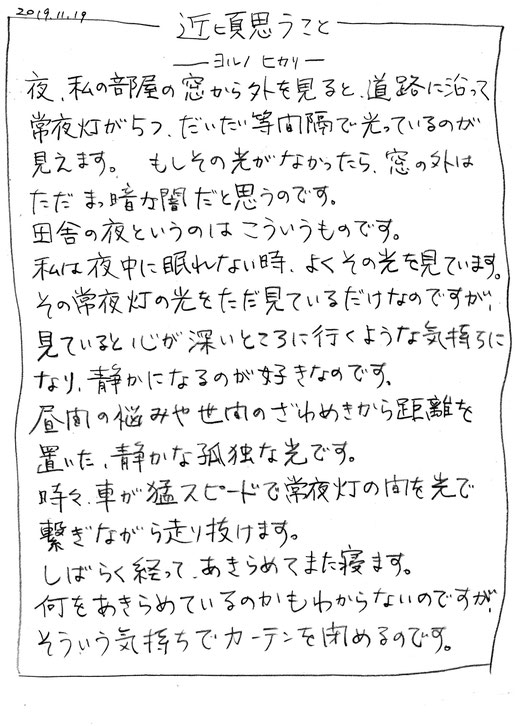 2019.11.19
近頃思うこと
ヨルノ ヒカリ
夜、私の部屋の窓から外を見ると、道路に沿って
常夜灯が5つ、だいたい等間隔で光っているのが
見えます。 もしその光がなかったら、窓の外は
ただまっ暗な闇だと思うのです。
田舎の夜というのはこういうものです。
私は夜中に眠れない時、よくその光を見ています。
その常夜灯の光をただ見ているだけなのですが、
見ていると心が深いところに行くような気持ちに
なり、静かになるのが好きなのです。
昼間の悩みや世間のざわめきから距離を
置いた、静かな孤独な光です。
時々、車が猛スピードで常夜灯の間を光で
繋ぎながら走り抜けます。
しばらく経って、あきらめてまた寝ます。
何をあきらめているのかもわからないのですが、
そういう気持ちでカーテンを閉めるのです。